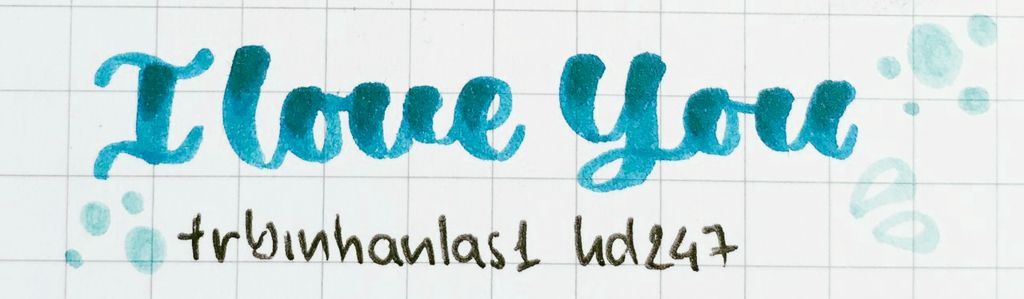 I love You
trbinhanlas1 hd247